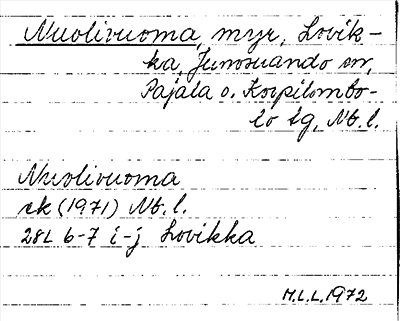 Nuolivuoma, myr, Lovik-
ka, Junosuando sn,
Pajala o. Korpilombo-
lo tg, Nb. l.
Nuolivuoma
ek (1971) Nb. l.
28L 6-7 i-j Lovikka
M.L.L. 1972